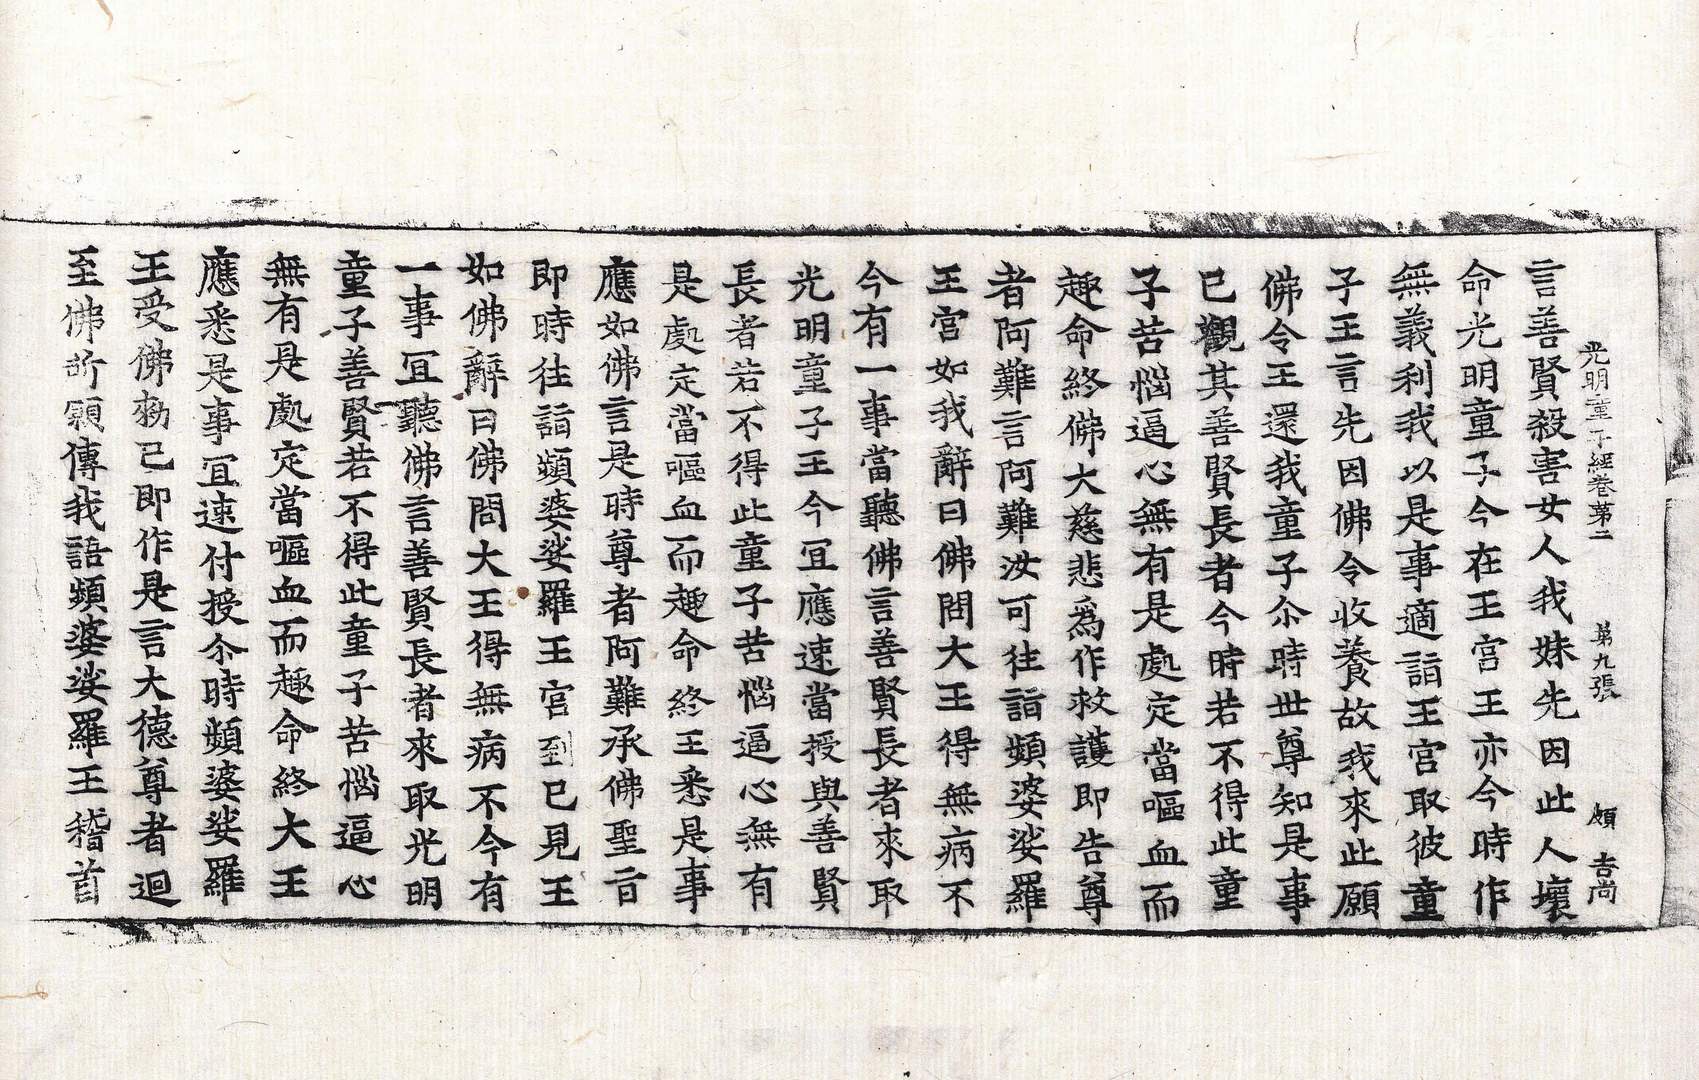 光明童子經卷第二 第九張 頗 吉尚
言善賢殺害女人我妹先因此人壞
命光明童子今在王宮王亦今時作
無義利我我以是事適詣王宮取彼童
子王言先因佛令收養故我來此願
佛令王還我童子尒時世尊知是事
已觀其善賢長者今時若不得此童
子苦惱逼心無有是處定當嘔血而
趣命終佛大慈悲為作救護即告尊
者阿難言阿難汝可往詣頻婆娑羅
王宮如我辭曰佛問大王得無病不
今有一事當聽佛言善賢長者來取
光明童子王今冝應速當授與善賢
長者若不得此童子苦惱逼心無有
是處定當嘔血而趣命終王悉是事
應如佛言是時尊者阿難承佛聖旨
即時往詣頻婆娑羅王宮到已見王
如佛辭曰佛問大王得無病不今有
一事冝聽佛言善賢長者來取光明
童子善賢若不得此童子苦惱逼心
無有是處定當嘔血而趣命終大王
應悉是事冝速付授尒時頻婆娑羅
王受佛勑已即作是言大德尊者迴
至佛所願傳我語頻婆娑羅王稽首